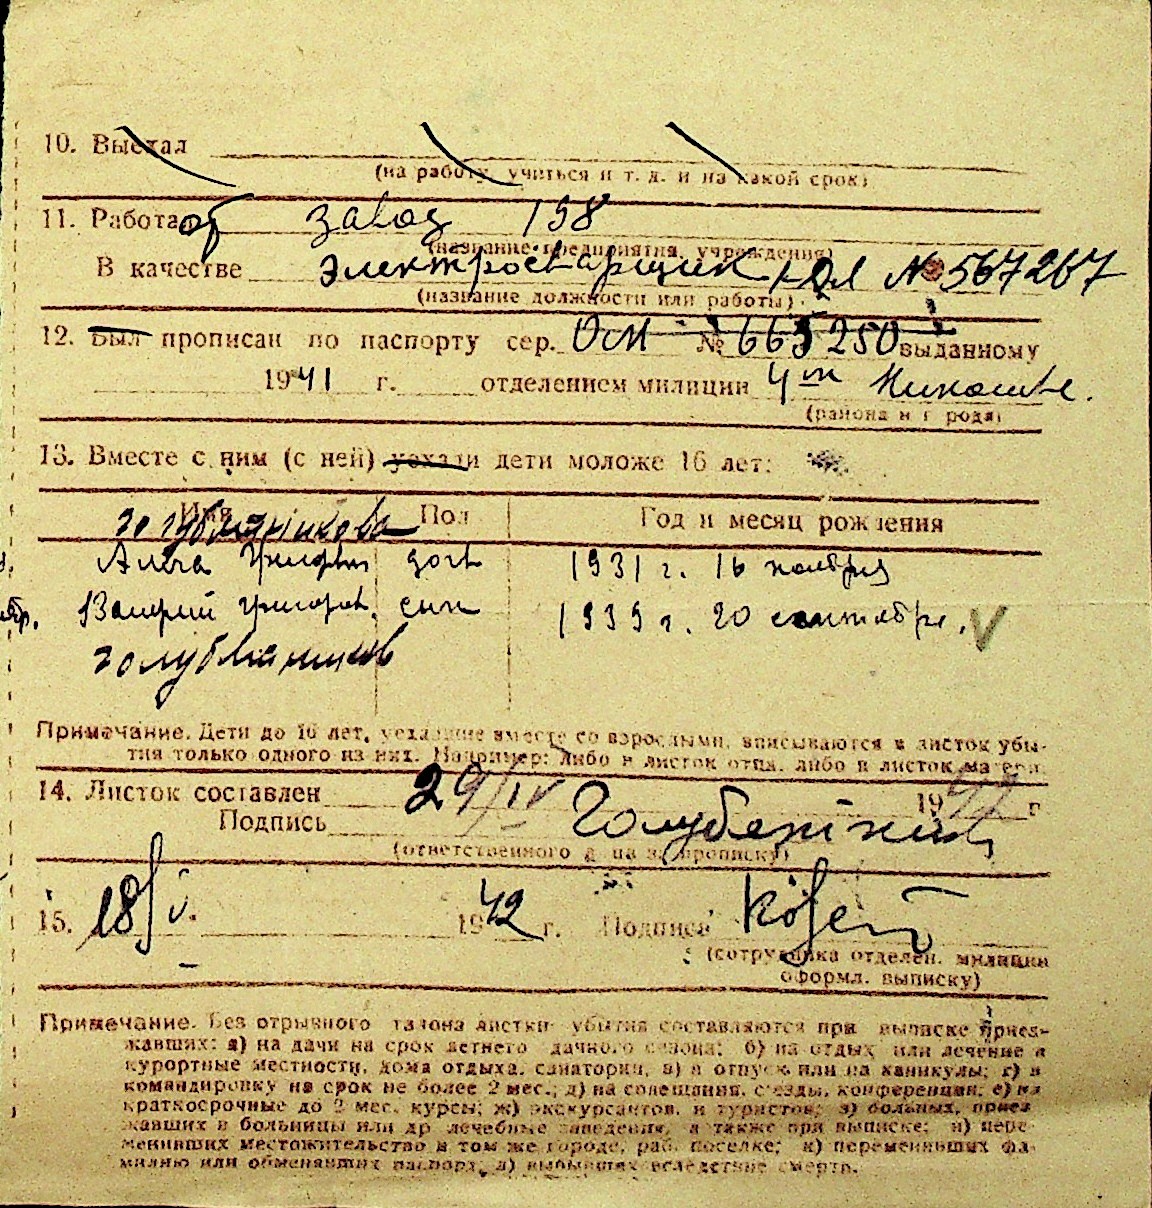 10. Выехал
(на работу, учиться и т. д. и на какой срок)
11. Работает завод 198
(название предприятия, учреждения)
В качестве электросварщик № 567267
(название должности или работы)
12. Был прописан по паспорту сер. № 665250 выданному
1941 г. отделением милиции 4 ом
(района и города)
13. Вместе с ним (с ней) уехали дети моложе 16 лет:
Имя Пол Год и месяц рождения
дочь 1931 г. 16 ноября
Валерий Григорьев. сын 1939 г. 20 сентября. V
Примечание. Дети до 16 лет, уехавшие вместе со взрослыми, вписываются в листок убы-
тия только одного из них. Например: либо в листок отца, либо в листок матери.
14. Листок составлен 29/IV 1942 г
Подпись
(ответственного лица за прописку)
15. 18/V. 1942 г. Подпись
(сотрудника отделен. милиции
оформл. выписку)
Примечание. Без отрывного талона листки убытия составляются при выписке приез-
жавших: а) на дачи на срок летнего дачного сезона; б) на отдых или лечение в
курортные местности, дома отдыха, санатории, в) в отпуск или на каникулы; г) в
командировку на срок не более 2 мес.; д) на совещания, съезды, конференции; е) на
краткосрочные до 2 мес. курсы; ж) экскурсантов, и туристов; з) больных, приез
жавших в больницы или др лечебные заведения, а также при выписке; и) пере-
менивших местожительство в том же городе, раб. поселке; к) переменивших фа-
милию или обменявших паспорт, л) выбывших вследствие смерти.